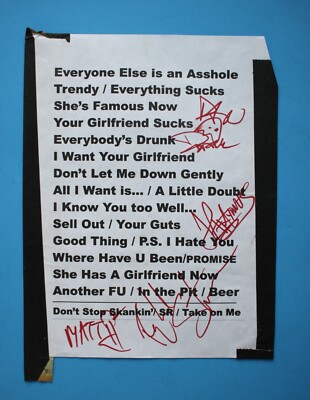 Everyone Else is an Asshole
Trendy / Everything Sucks
She's Famous Now
Your Girlfriend Sucks
Everybody's Drunk
I Want Your Girlfriend
Don't Let Me Down Gently
All I Want is... / A Little Doubt
I Know You too Well...
Sell Out / Your Guts
Good Thing / P.S. I Hate You
Where Have U Been/PROMISE
She Has A Girlfriend Now
Another FU / In the Pit / Beer
Don't Stop Skankin'/ SR / Take on Me
MATT